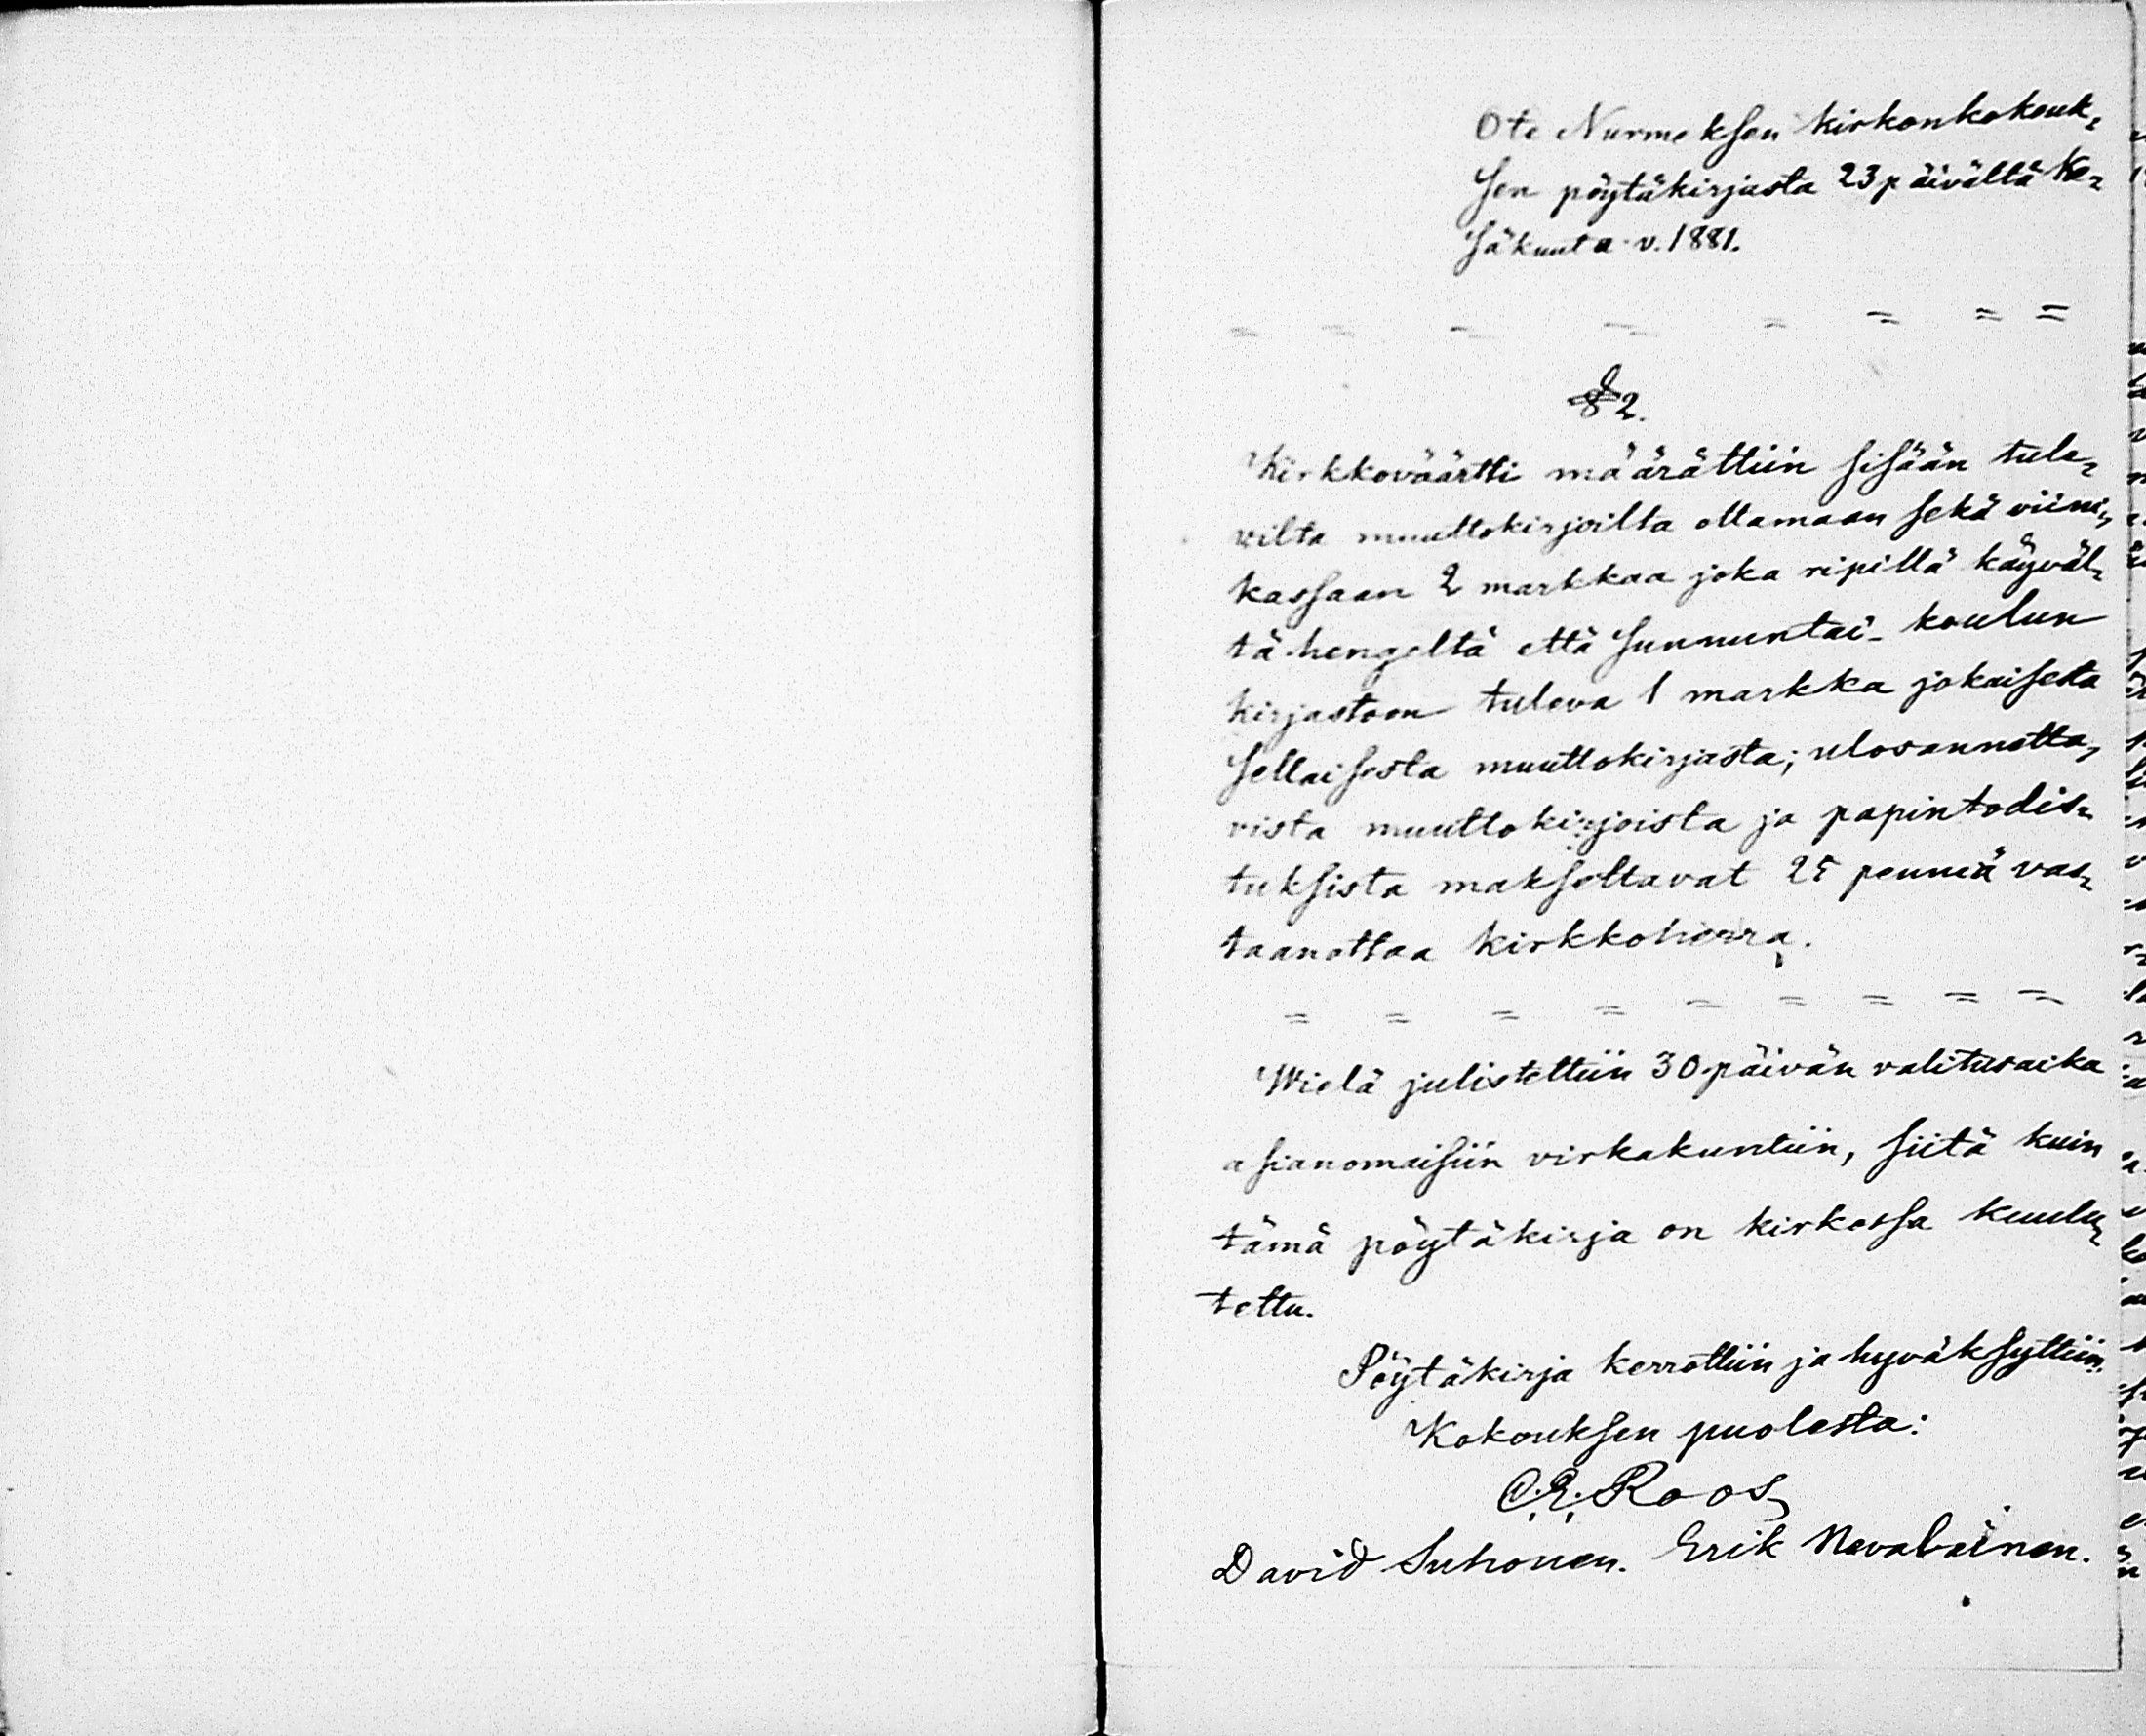 Ote Nurmeksen kirkonkokouk-
sen pöytäkirjasta 23 päivältä Ke-
säkuuta v. 1881.
= = = = = = = =
§ 2.
Kirkkoväärtti määrättiin sisään tule-
vilta muuttokirjoilta ottamaan sekä viini-
kassaan 2 markkaa joka ripillä käyväl-
tä hengeltä että sunnuntai-koulun
kirjastoon tuleva 1 markka jokaisesta
sellaisesta muuttokirjasta; ulosannetta-
vista muuttokirjoista ja papintodis-
tuksista maksettavat 25 penniä vas-
taanottaa Kirkkoherra.
= = = = = = = = =
Wielä julistettiin 30 päivän valitusaika
asianomaisiin virkakuntiin, siitä kuin
tämä pöytäkirja on kirkossa kuulu-
tettu.
Pöytäkirja kerrottiin ja hyväksyttiin.
Kokouksen puolesta:
C. E. Roos
David Suhonen. Erik Nevalainen.